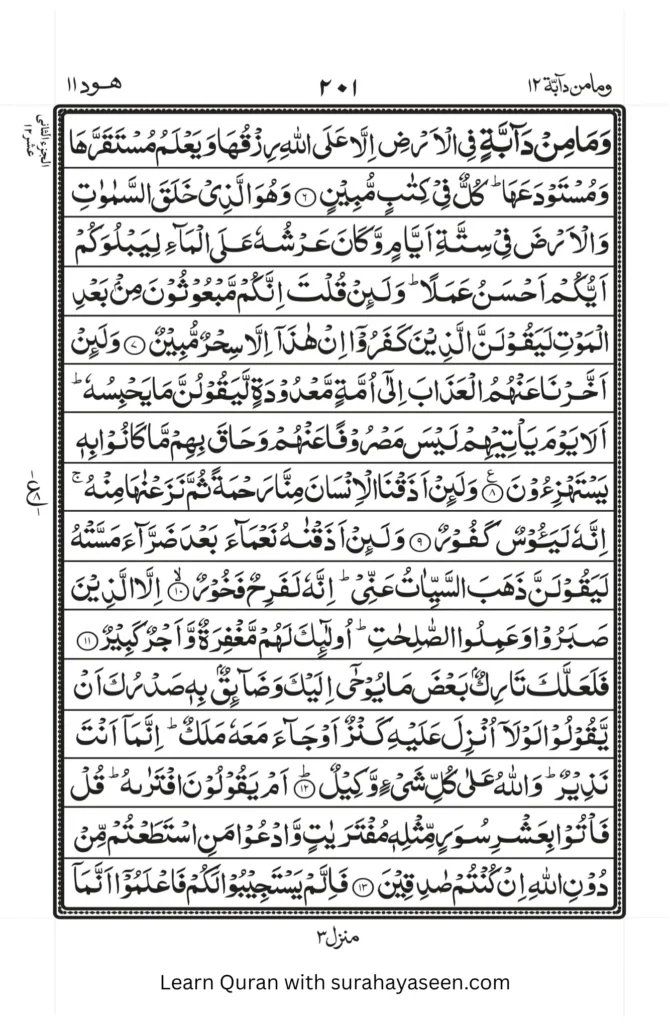 وما من دآبة ١٢
٢٠١
هود ١١
الجزء الثانى عشر ١٢
وَمَا مِنْ دَآبَّةٍ فِي الْاَرْضِ اِلَّا عَلَى اللّٰهِ رِزْقُهَا وَيَعْلَمُ مُسْتَقَرَّهَا
وَمُسْتَوْدَعَهَا ؕ كُلٌّ فِيْ كِتٰبٍ مُّبِيْنٍ ۝۶ وَهُوَ الَّذِيْ خَلَقَ السَّمٰوٰتِ
وَالْاَرْضَ فِيْ سِتَّةِ اَيَّامٍ وَّكَانَ عَرْشُهٗ عَلَى الْمَآءِ لِيَبْلُوَكُمْ
اَيُّكُمْ اَحْسَنُ عَمَلًا ؕ وَلَىِٕنْ قُلْتَ اِنَّكُمْ مَّبْعُوْثُوْنَ مِنْۢ بَعْدِ
الْمَوْتِ لَيَقُوْلَنَّ الَّذِيْنَ كَفَرُوْۤا اِنْ هٰذَاۤ اِلَّا سِحْرٌ مُّبِيْنٌ ۝۷ وَلَىِٕنْ
اَخَّرْنَا عَنْهُمُ الْعَذَابَ اِلٰۤى اُمَّةٍ مَّعْدُوْدَةٍ لَّيَقُوْلُنَّ مَا يَحْبِسُهٗ ؕ
اَلَا يَوْمَ يَاْتِيْهِمْ لَيْسَ مَصْرُوْفًا عَنْهُمْ وَحَاقَ بِهِمْ مَّا كَانُوْا بِهٖ
يَسْتَهْزِءُوْنَ ۝۸ ع وَلَىِٕنْ اَذَقْنَا الْاِنْسَانَ مِنَّا رَحْمَةً ثُمَّ نَزَعْنٰهَا مِنْهُ ۚ
اِنَّهٗ لَيَـُٔوْسٌ كَفُوْرٌ ۝۹ وَلَىِٕنْ اَذَقْنٰهُ نَعْمَآءَ بَعْدَ ضَرَّآءَ مَسَّتْهُ
لَيَقُوْلَنَّ ذَهَبَ السَّيِّاٰتُ عَنِّيْ ؕ اِنَّهٗ لَفَرِحٌ فَخُوْرٌ ۝۱۰ۙ اِلَّا الَّذِيْنَ
صَبَرُوْا وَعَمِلُوا الصّٰلِحٰتِ ؕ اُولٰٓىِٕكَ لَهُمْ مَّغْفِرَةٌ وَّاَجْرٌ كَبِيْرٌ ۝۱۱
فَلَعَلَّكَ تَارِكٌۢ بَعْضَ مَا يُوْحٰۤى اِلَيْكَ وَضَآىِٕقٌۢ بِهٖ صَدْرُكَ اَنْ
يَّقُوْلُوْا لَوْلَاۤ اُنْزِلَ عَلَيْهِ كَنْزٌ اَوْ جَآءَ مَعَهٗ مَلَكٌ ؕ اِنَّمَاۤ اَنْتَ
نَذِيْرٌ ؕ وَاللّٰهُ عَلٰى كُلِّ شَيْءٍ وَّكِيْلٌ ۝۱۲ؕ اَمْ يَقُوْلُوْنَ افْتَرٰىهُ ؕ قُلْ
فَاْتُوْا بِعَشْرِ سُوَرٍ مِّثْلِهٖ مُفْتَرَيٰتٍ وَّادْعُوْا مَنِ اسْتَطَعْتُمْ مِّنْ
دُوْنِ اللّٰهِ اِنْ كُنْتُمْ صٰدِقِيْنَ ۝۱۳ فَاِلَّمْ يَسْتَجِيْبُوْا لَكُمْ فَاعْلَمُوْۤا اَنَّمَاۤ
منزل ٣
Learn Quran with surahayaseen.com